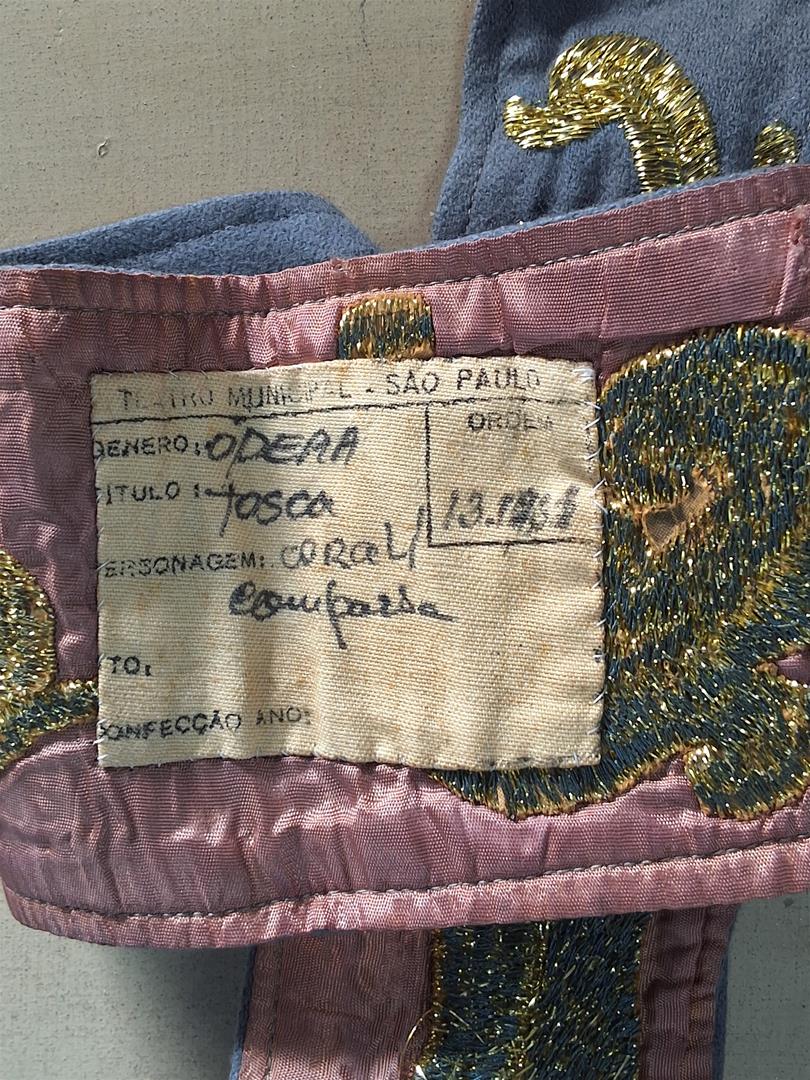 TEATRO MUNICIPAL - SÃO PAULO
GENERO: OPERA
ORDEM
ITULO: Tosca
ERSONAGEM: CORAL/
Comparsa
TO:
CONFECÇÃO ANO: